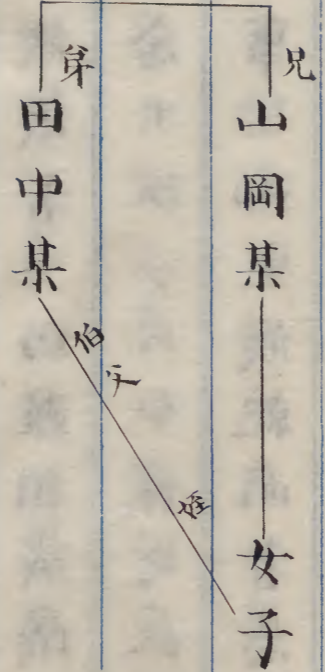 兄
山岡某
女子
弟
田中某
伯父
姪